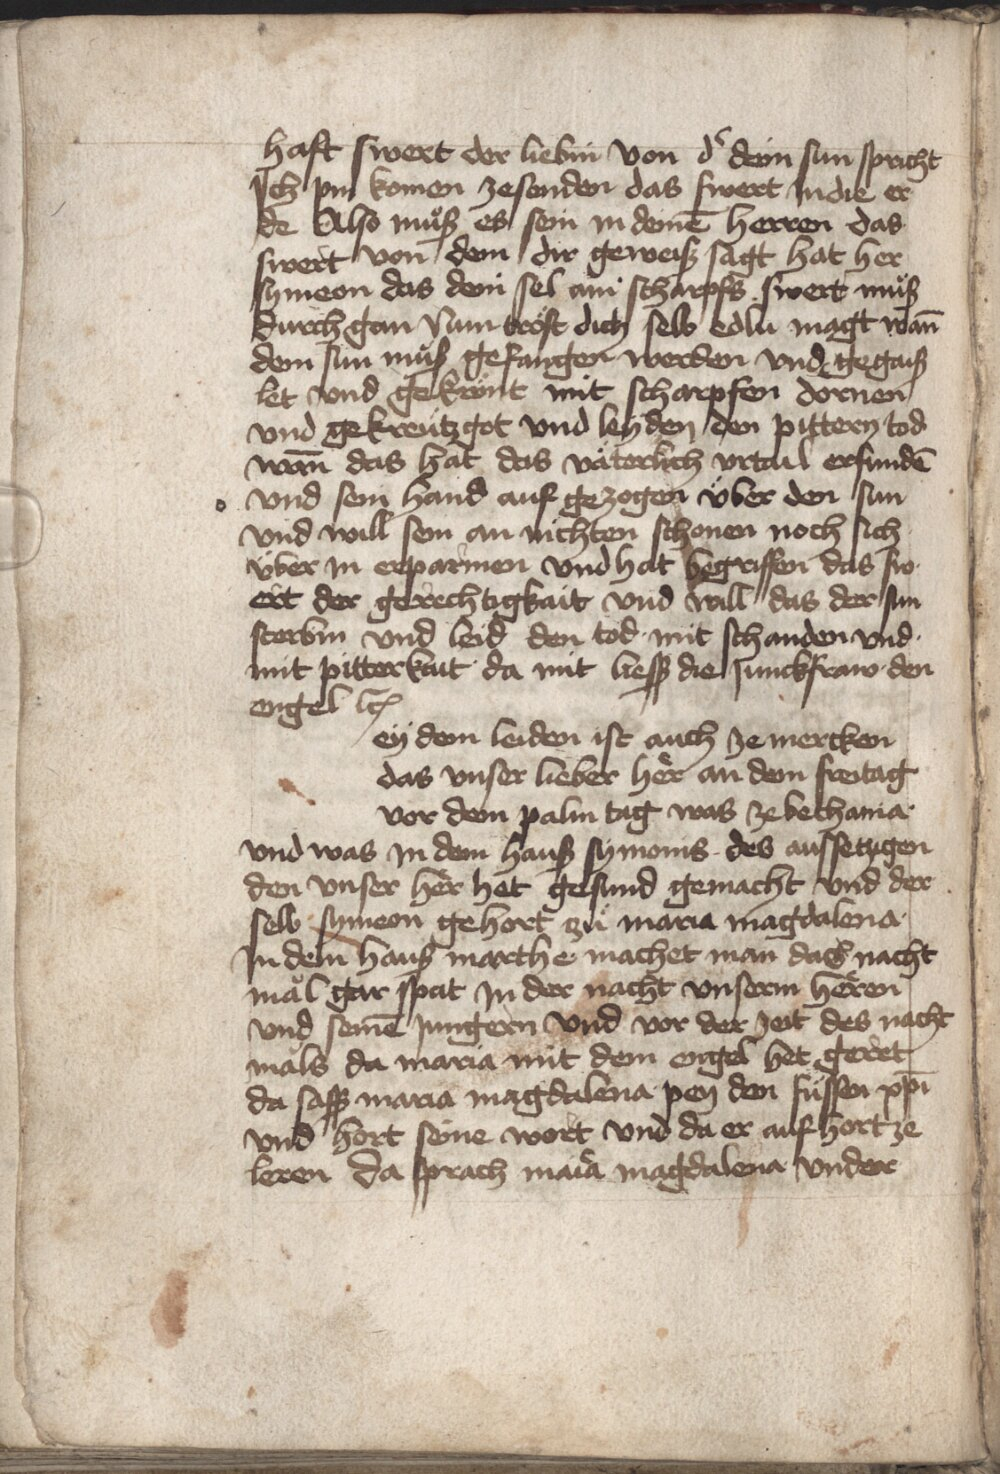 haft swert der liebin von d͛ dein sun spricht
Ich pin komen zesenden das swert in die er
de Also muͦß es sein in deinē herren das
swert von dem dir geweiß sagt hat her
symeon das dein sel ain scharpfs swert muͦß
durch gan Nun tröst dich selb edlu magt wan̄
dein sun muͦß gefangen werden vnd gegaiß
let vnd gekrönt mit scharpfen dornen
vnd gekreutzgot vnd leyden den pittern tod
wan̄ das hat das väterlich vrtail erfundē
vnd sein hand auf gezogen über den sun
vnd will sein an nichten schonen noch sich
über in erparmen vnd hat begriffen das sw
ert der gerechtigkait vnd will das der sun
sterbin vnd leid den tod mit schanden vnd
mit pitterkait da mit liess die Junckfraw den
engel
eÿ dem leiden ist auch ze mercken
das vnser lieber her an dem freitag
vor dem palm tag was ze bethania
vnd was in dem hauß symonis des aussetzigen
den vnser her het gesund gemacht vnd der
selb symeon gehort zuͦ maria magdalena
In dem hauß marthe machet man das nacht
mal gar spat in der nacht vnserm heren
vnd seinē Jungern vnd vor der zeit des nacht
mals da maria mit dem engel het geret
da sass maria magdalena pey den füssen xp̄i
vnd hort seine wort vnd da er auf hort ze
leren da sprach maia magdalena vnder